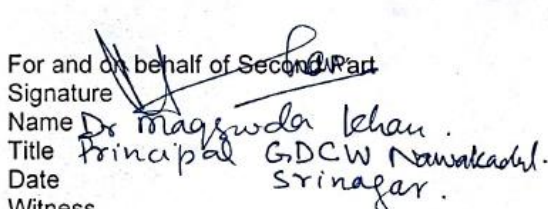 For and on behalf of Second Part
Signature
Name Dr Maqsooda Khan.
Title Principal GDCW Nawakadal.
Date Srinagar.
Witness